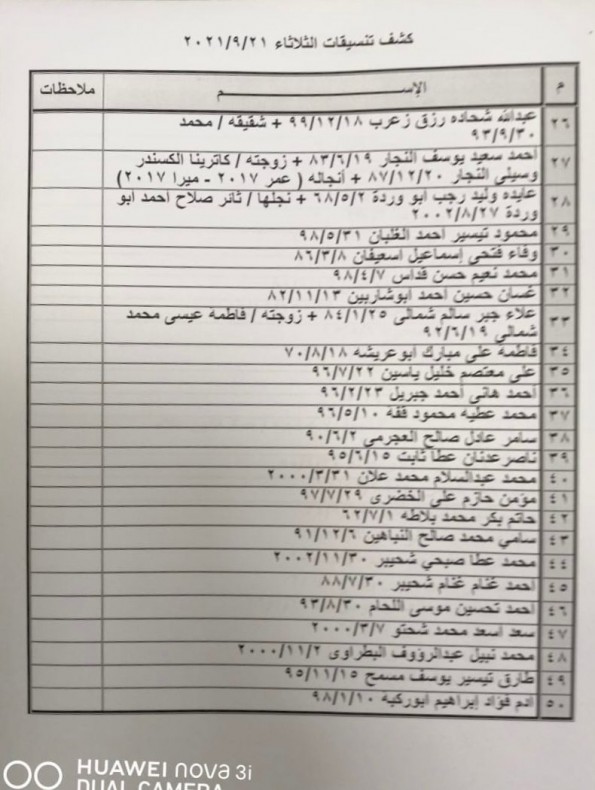 كشف تنسيقات الثلاثاء ٢٠٢١/٩/٢١
م الإســـــم ملاحظات
٢٦ عبدالله شحاده رزق زعرب ٩٩/١٢/١٨ + شقيقه / محمد
٩٣/٩/٣٠
٢٧ احمد سعيد يوسف النجار ٨٣/٦/١٩ + زوجته / كاترينا الكسندر
وسيلي النجار ٨٧/١٢/٢٠ + أنجاله ( عمر ٢٠١٧ - ميرا ٢٠١٧ )
٢٨ عايده وليد رجب ابو وردة ٦٨/٥/٢ + نجلها / ثائر صلاح احمد ابو
وردة ٢٠٠٢/٨/٢٧
٢٩ محمود تيسير احمد الظبان ٩٨/٥/٣١
٣٠ وفاء فتحى إسماعيل اسعيفان ٨٦/٣/٨
٣١ محمد نعيم حسن قداس ٩٨/٤/٧
٣٢ غسان حسين احمد ابوشاربين ٨٢/١١/١٣
٣٣ علاء جبر سالم شمالى ٨٤/١/٢٥ + زوجته / فاطمه عيسى محمد
شمالى ٩٢/٦/١٩
٣٤ فاطمه على مبارك ابوعريشه ٧٠/٨/١٨
٣٥ على معتصم خليل ياسين ٩٦/٧/٢٢
٣٦ احمد هانى احمد جبريل ٩٦/٢/٢٣
٣٧ محمد عطيه محمود فقه ٩٦/٥/١٠
٣٨ سامر عادل صالح العجرمي ٩٠/٦/٢
٣٩ ناصر عدنان عطا ثابت ٩٥/٦/١٥
٤٠ محمد عبدالسلام محمد علان ٢٠٠٠/٣/٣١
٤١ مؤمن حازم على الخضرى ٩٧/٧/٢٩
٤٢ حاتم بكر محمد بلاطه ٦٢/٧/١
٤٣ سامي محمد صالح النباهين ٩١/١٢/٦
٤٤ محمد عطا صبحي شحيبر ٢٠٠٢/١١/٣٠
٤٥ احمد غنام غنام شحيبر ٨٨/٧/٣٠
٤٦ احمد تحسين موسى اللحام ٩٣/٨/٣٠
٤٧ سعد اسعد محمد شحتو ٢٠٠٠/٣/٧
٤٨ محمد نبيل عبدالرؤوف البطراوى ٢٠٠٠/١١/٢
٤٩ طارق تيسير يوسف مسمح ٩٥/١١/١٥
٥٠ ادم فؤاد إبراهيم ابوركبه ٩٨/١/١٠
HUAWEI nova 3i
DUAL CAMERA